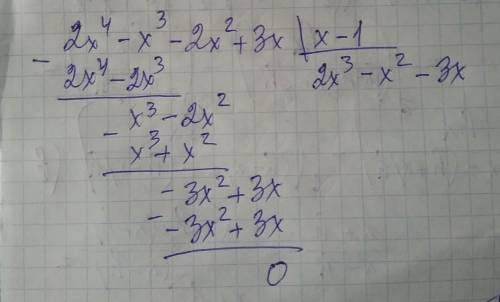 2x⁴ - x³ - 2x² + 3x | x - 1
- 2x⁴ - 2x³
2x³ - x² - 3x
x³ - 2x²
- x³ + x²
- 3x² + 3x
- - 3x² + 3x
0